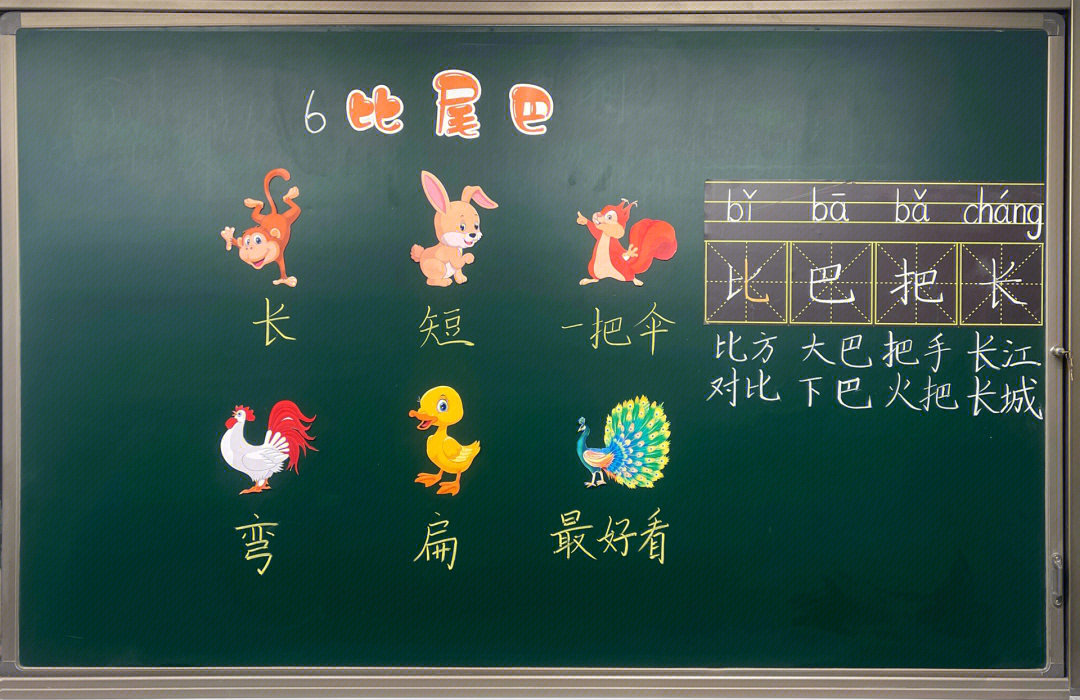 6 比尾巴
长 短 一把伞
弯 扁 最好看
bǐ bā bǎ cháng
比 巴 把 长
比方 大巴 把手 长江
对比 下巴 火把 长城